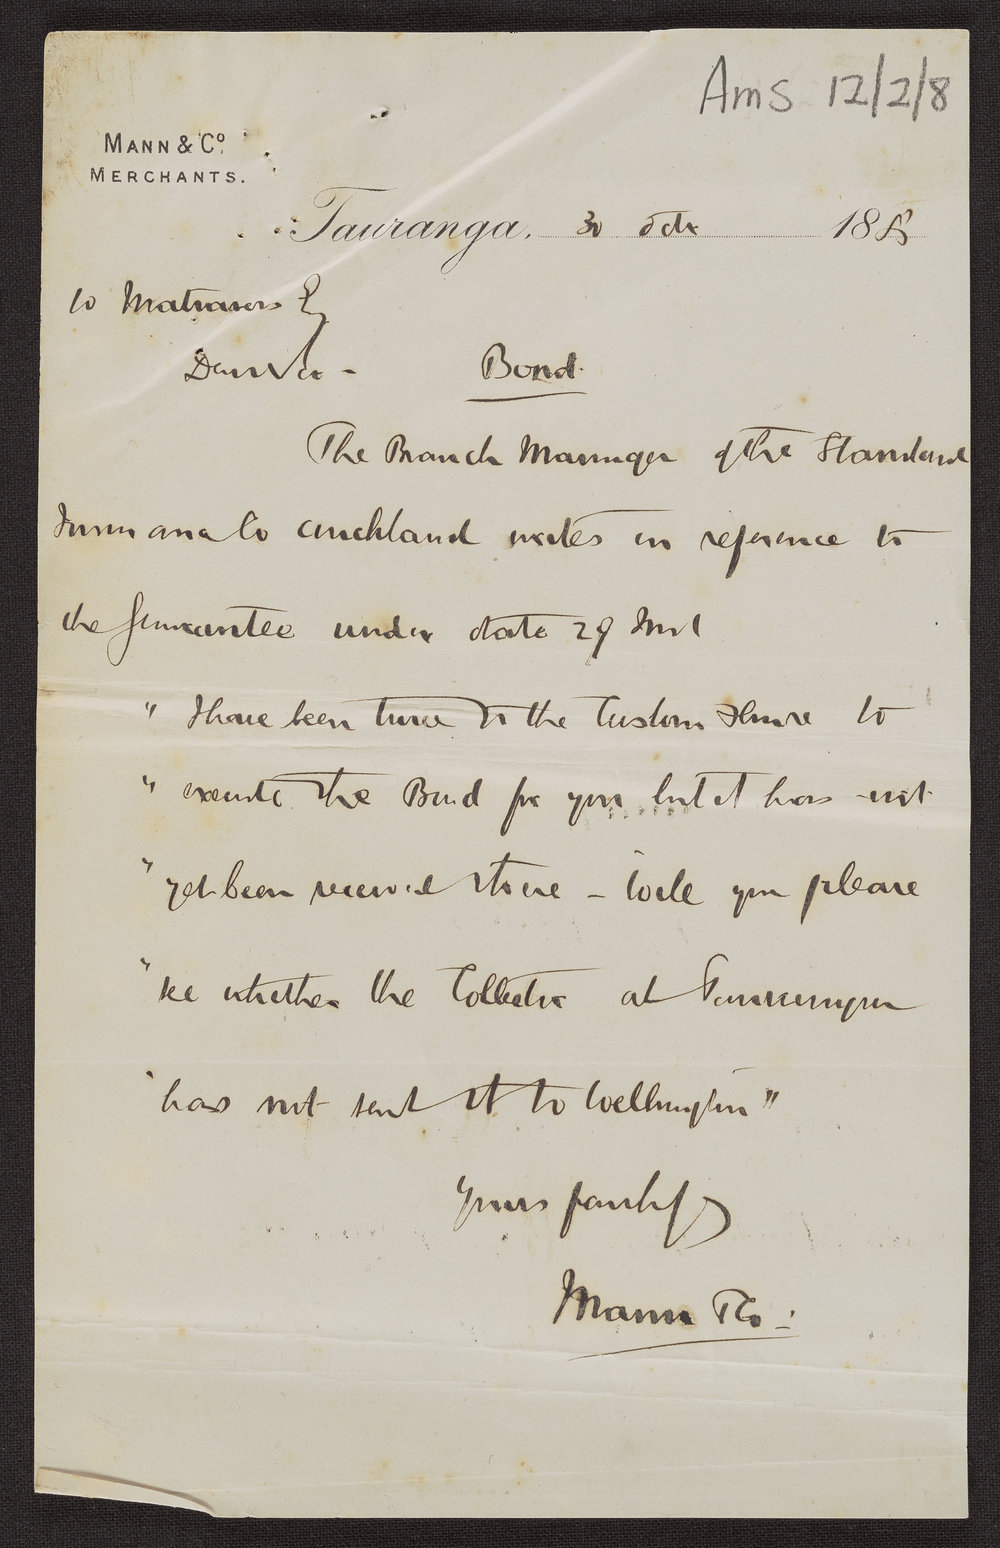 Ams 12/2/8
MANN & Co.
MERCHANTS.
Tauranga, 30 Octr 188
to
Dear Sir - Bond.
The Branch Manager of the Standard
Insurance Co Auckland writes in reference to
the Guarantee under date 29 Inst
" I have been twice to the Custom House to
" execute the Bond for you but it has not
" yet been received there - Will you please
" see whether the Collector at Tauranga
" has not sent it to Wellington"
Yours faithfy
Mann & Co: